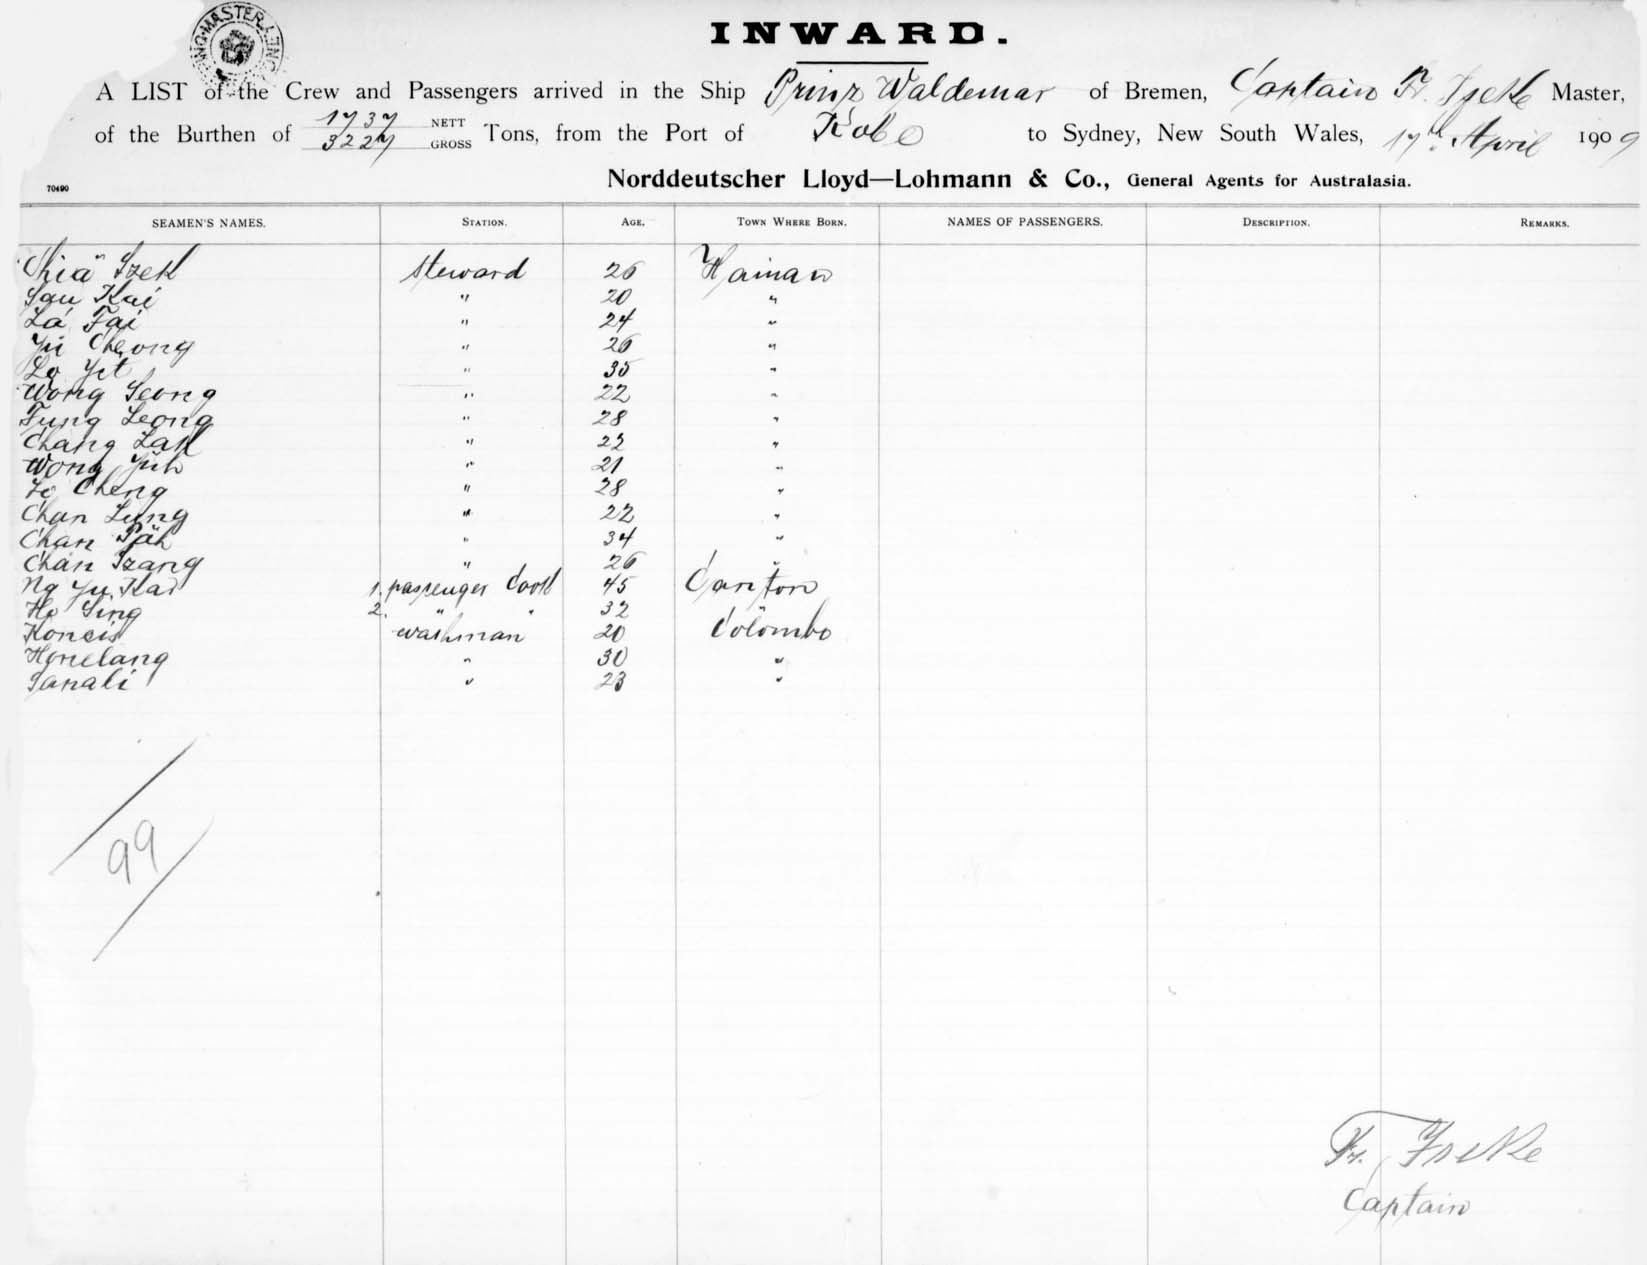 INWARD.
A LIST of the Crew and Passengers arrived in the Ship Prinz Waldemar of Bremen, Captain Fr. Iseke Master,
of the Burthen of 1737 NETT 3227 GROSS Tons, from the Port of Kobe to Sydney, New South Wales, 17th April 1909
70490 Norddeutscher Lloyd—Lohmann & Co., General Agents for Australasia.
SEAMEN'S NAMES. STATION. AGE. TOWN WHERE BORN. NAMES OF PASSENGERS. DESCRIPTION. REMARKS.
Chiä Szek steward 26 Hainan
Sau Kai " 20 "
La Fai " 24 "
Yü Cheong " 26 "
Lo Yit " 35 "
Wong Seong " 22 "
Fung Leong " 28 "
Chang Lak " 22 "
Wong Yüh " 21 "
Lo Cheng " 28 "
Chan Lung " 22 "
Chan Päh " 34 "
Chan Szang " 26 "
Ng Yu Kai 1. passenger Cook 45 Canton
Ho Sing 2. " " 32
Koncis washman 20 Colombo
Honelang " 30 "
Sanali " 23 "
99
Fr. Iseke
Captain